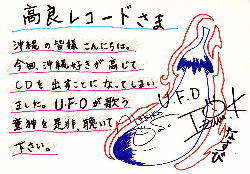 高良レコードさま
沖縄の皆様こんにちは。
今回、沖縄好きが高じて
CDを出すことになってしまい
ました。U.F.Oが歌う
童神を是非、聴いて
下さい。
U.F.O
なすび